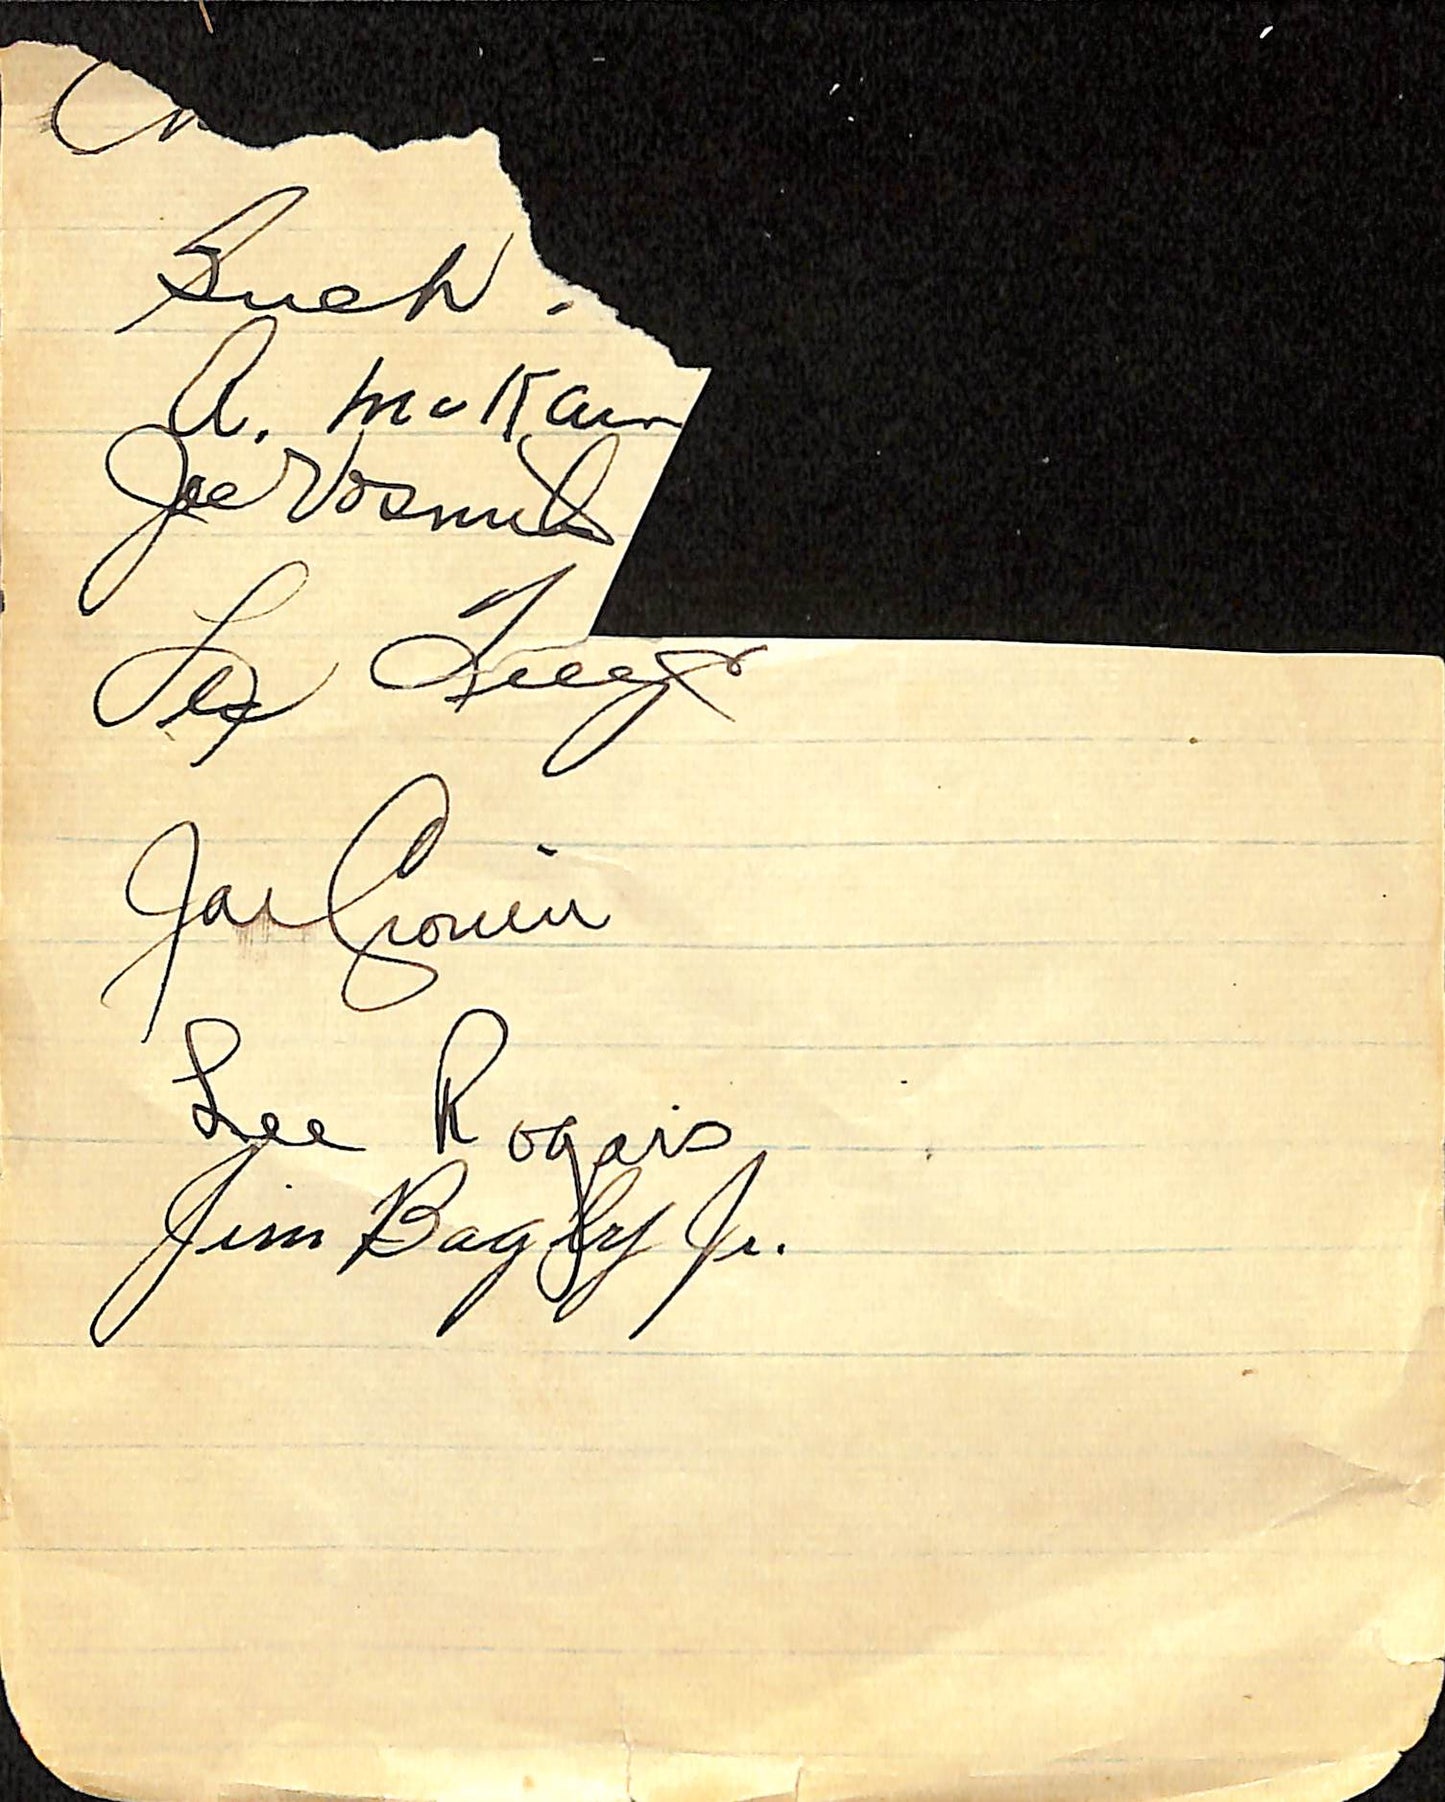 Buck.
A. McKain
Joe Vosmik
Joe Cronin
Lee Rogers
Jim Bagby Jr.